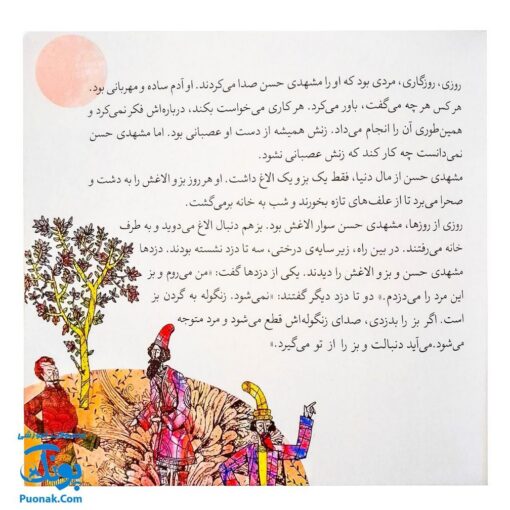 روزی، روزگاری، مردی بود که او را مشهدی حسن صدا می‌کردند. او آدم ساده و مهربانی بود.
هر کس هر چه می‌گفت، باور می‌کرد. هر کاری می‌خواست بکند، درباره‌اش فکر نمی‌کرد و
همین‌طوری آن را انجام می‌داد. زنش همیشه از دست او عصبانی بود. اما مشهدی حسن
نمی‌دانست چه کار کند که زنش عصبانی نشود.
مشهدی حسن از مال دنیا، فقط یک بز و یک الاغ داشت. او هر روز بز و الاغش را به دشت و
صحرا می‌برد تا از علف‌های تازه بخورند و شب به خانه برمی‌گشت.
روزی از روزها، مشهدی حسن سوار الاغش بود. بز هم دنبال الاغ می‌دوید و به طرف
خانه می‌رفتند. در بین راه، زیر سایه‌ی درختی، سه تا دزد نشسته بودند. دزدها
مشهدی حسن و بز و الاغش را دیدند. یکی از دزدها گفت: «من می‌روم و بز
این مرد را می‌دزدم.» دو تا دزد دیگر گفتند: «نمی‌شود. زنگوله به گردن بز
است. اگر بز را بدزدی، صدای زنگوله‌اش قطع می‌شود و مرد متوجه
می‌شود. می‌آید دنبالت و بز را از تو می‌گیرد.»
پونک
Puonak.Com